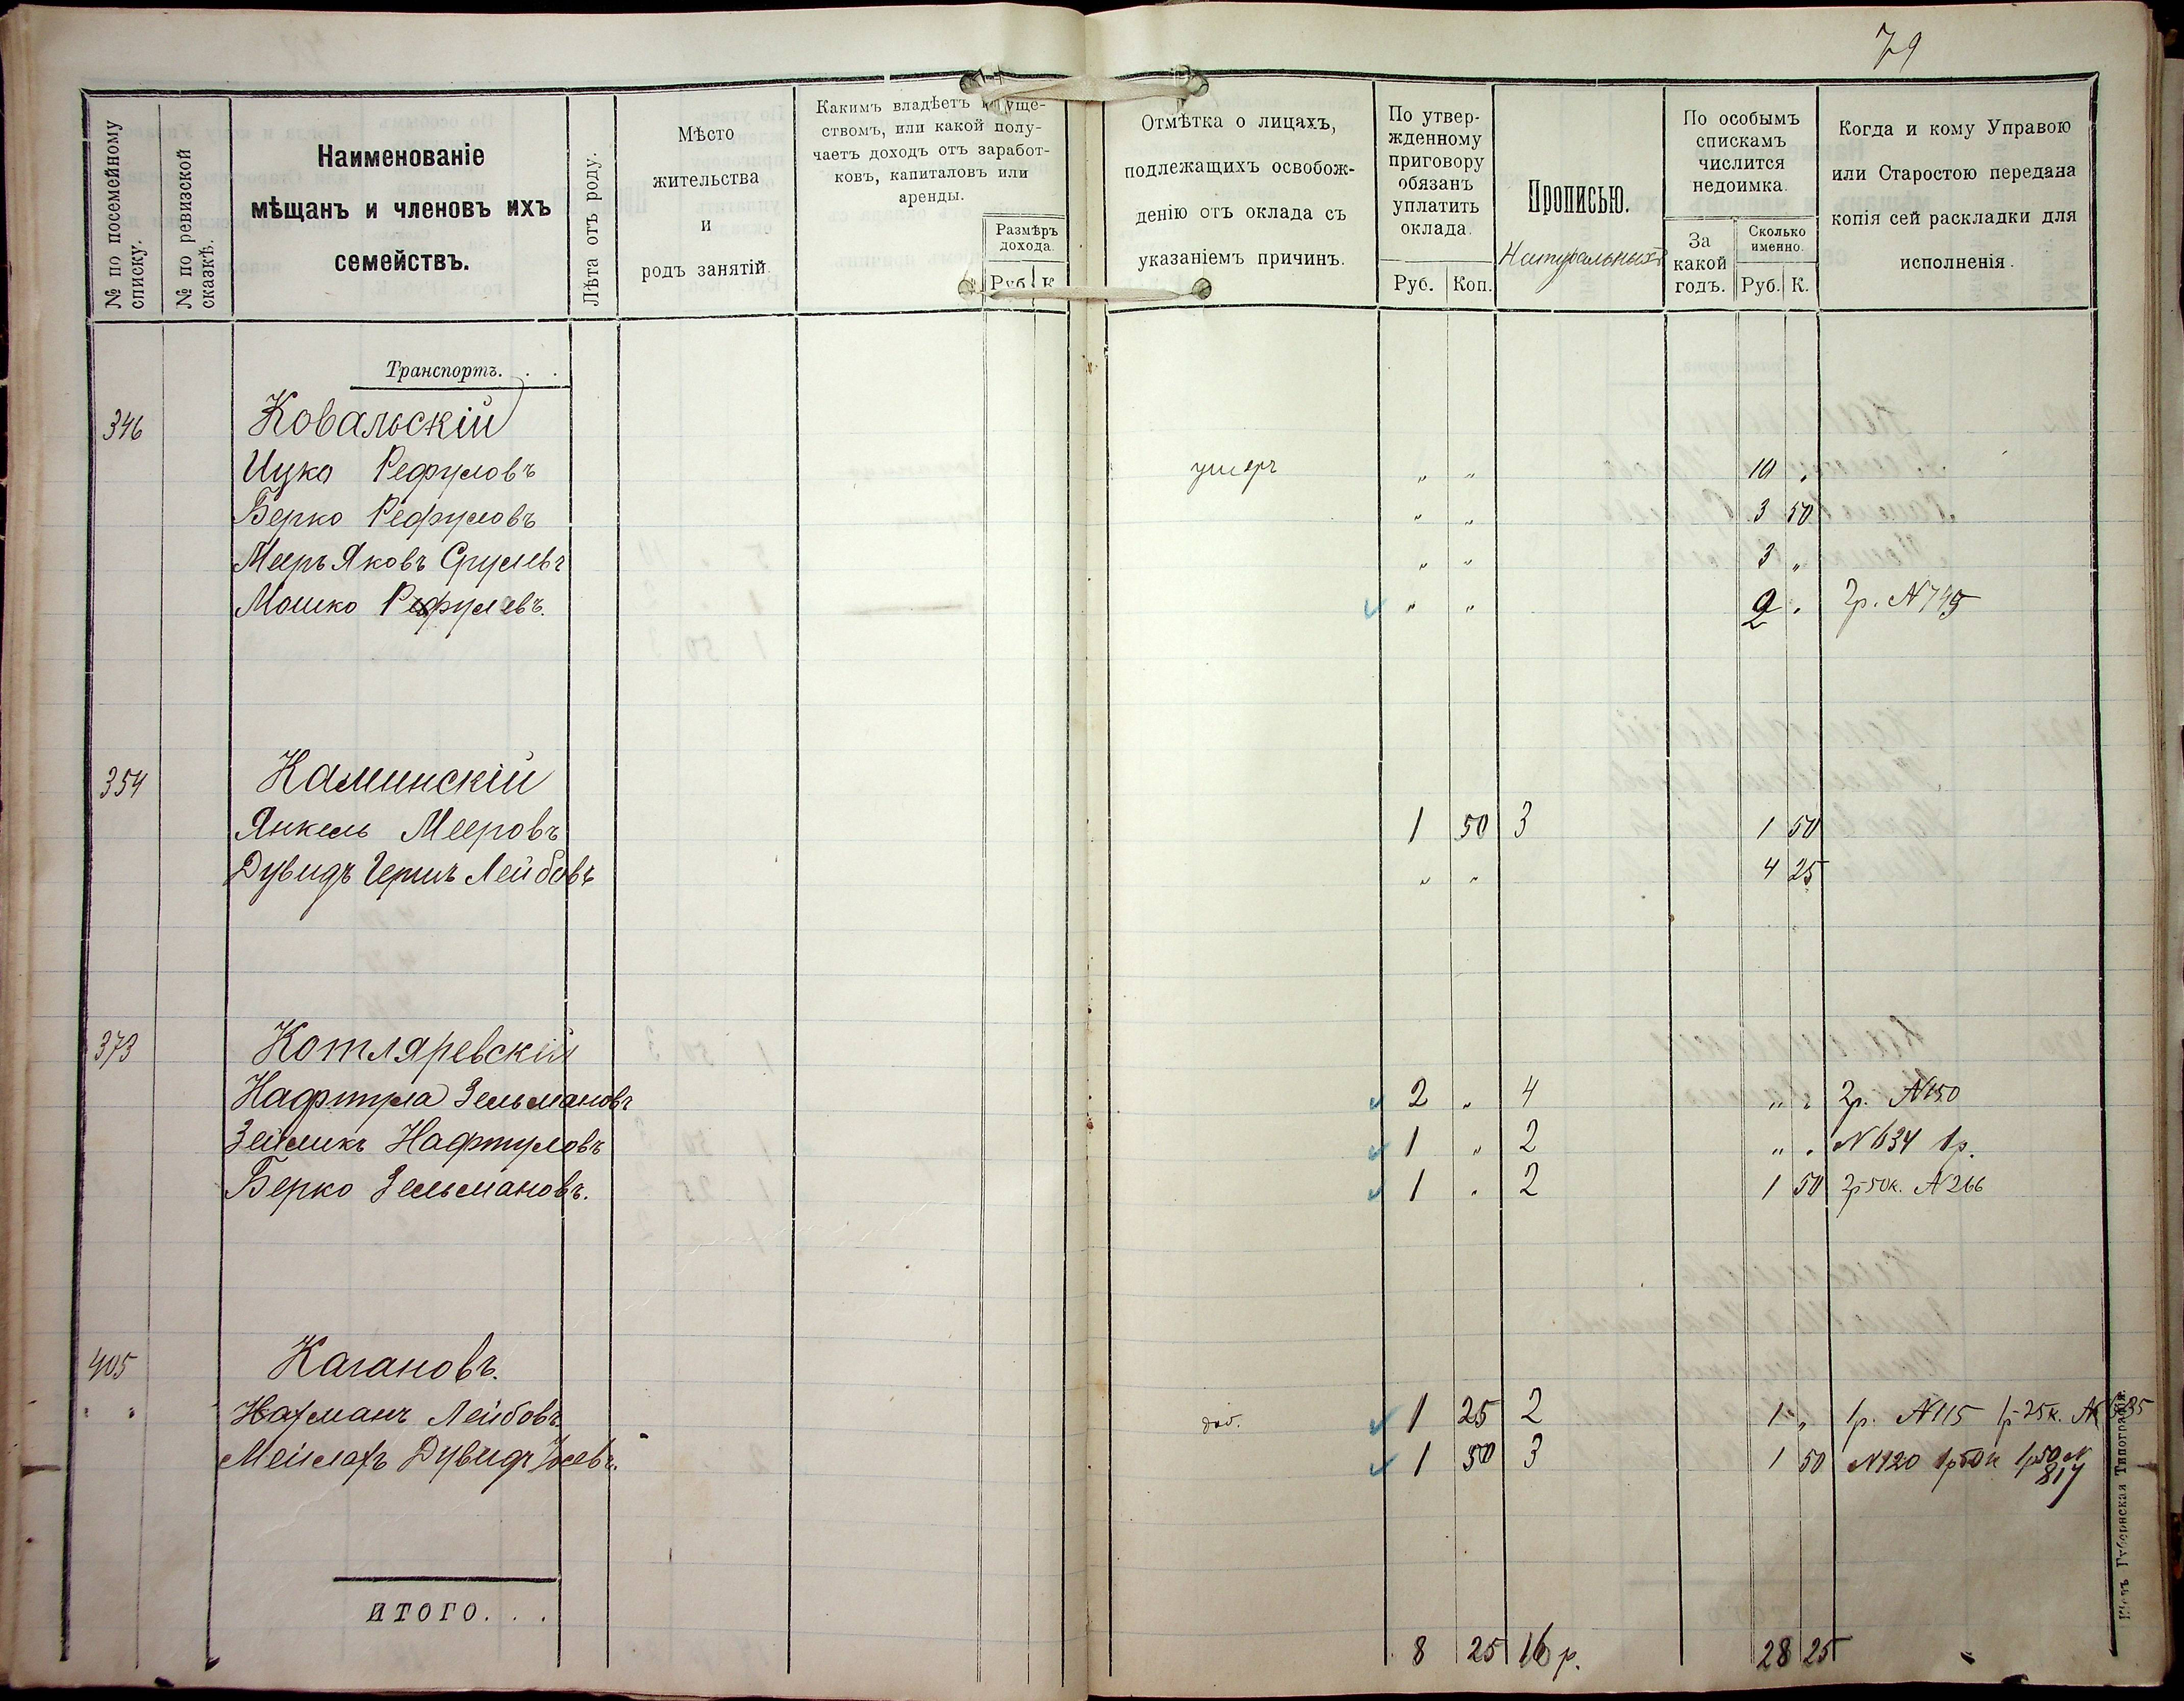 79
№ по посемейному списку.
№ по ревизской сказкѣ.
Наименованіе
мѣщанъ и членовъ ихъ
семействъ.
Лѣта отъ роду.
Мѣсто
жительства
и
родъ занятій.
Какимъ владѣетъ имуще-
ствомъ, или какой полу-
чаетъ доходъ отъ заработ-
ковъ, капиталовъ или
аренды.
Размѣръ
дохода.
Руб. К.
Отмѣтка о лицахъ,
подлежащихъ освобож-
денію отъ оклада съ
указаніемъ причинъ.
По утвер-
жденному
приговору
обязанъ
уплатить
оклада.
Руб. Коп.
Прописью.
Натуральныхъ
По особымъ
спискамъ
числится
недоимка.
За
какой
годъ.
Сколько
именно.
Руб. К.
Когда и кому Управою
или Старостою передана
копія сей раскладки для
исполненія.
Транспортъ. . .
346 Ковальскій
Ицко Рефуловъ умеръ " " 10 "
Берко Рефуловъ " " 3 50
Мееръ Яковъ Срулевъ " " 3 "
Мошко Рефулевъ. " " 2 " 2р. №749
354 Каминскій
Янкель Мееровъ 1 50 3 1 50
Дувидъ Гершъ Лейбовъ " " 4 25
373 Котляревскій
Нафтула Зельмановъ 2 " 4 " " 2р. №150
Зейликъ Нафтуловъ 1 " 2 " " №634 1р.
Берко Зельмановъ. 1 " 2 1 50 2р50к. №266
405 Кагановъ.
" " Нахманъ Лейбовъ 1 25 2 1 " 1р. №115 1р25к. №
Мейлахъ Дувидъ 1 50 3 1 50 №120 1р50к 1р50 №
817
ИТОГО. . .
8 25 16 р. 28 25
Кіевъ Губернская Типографія.